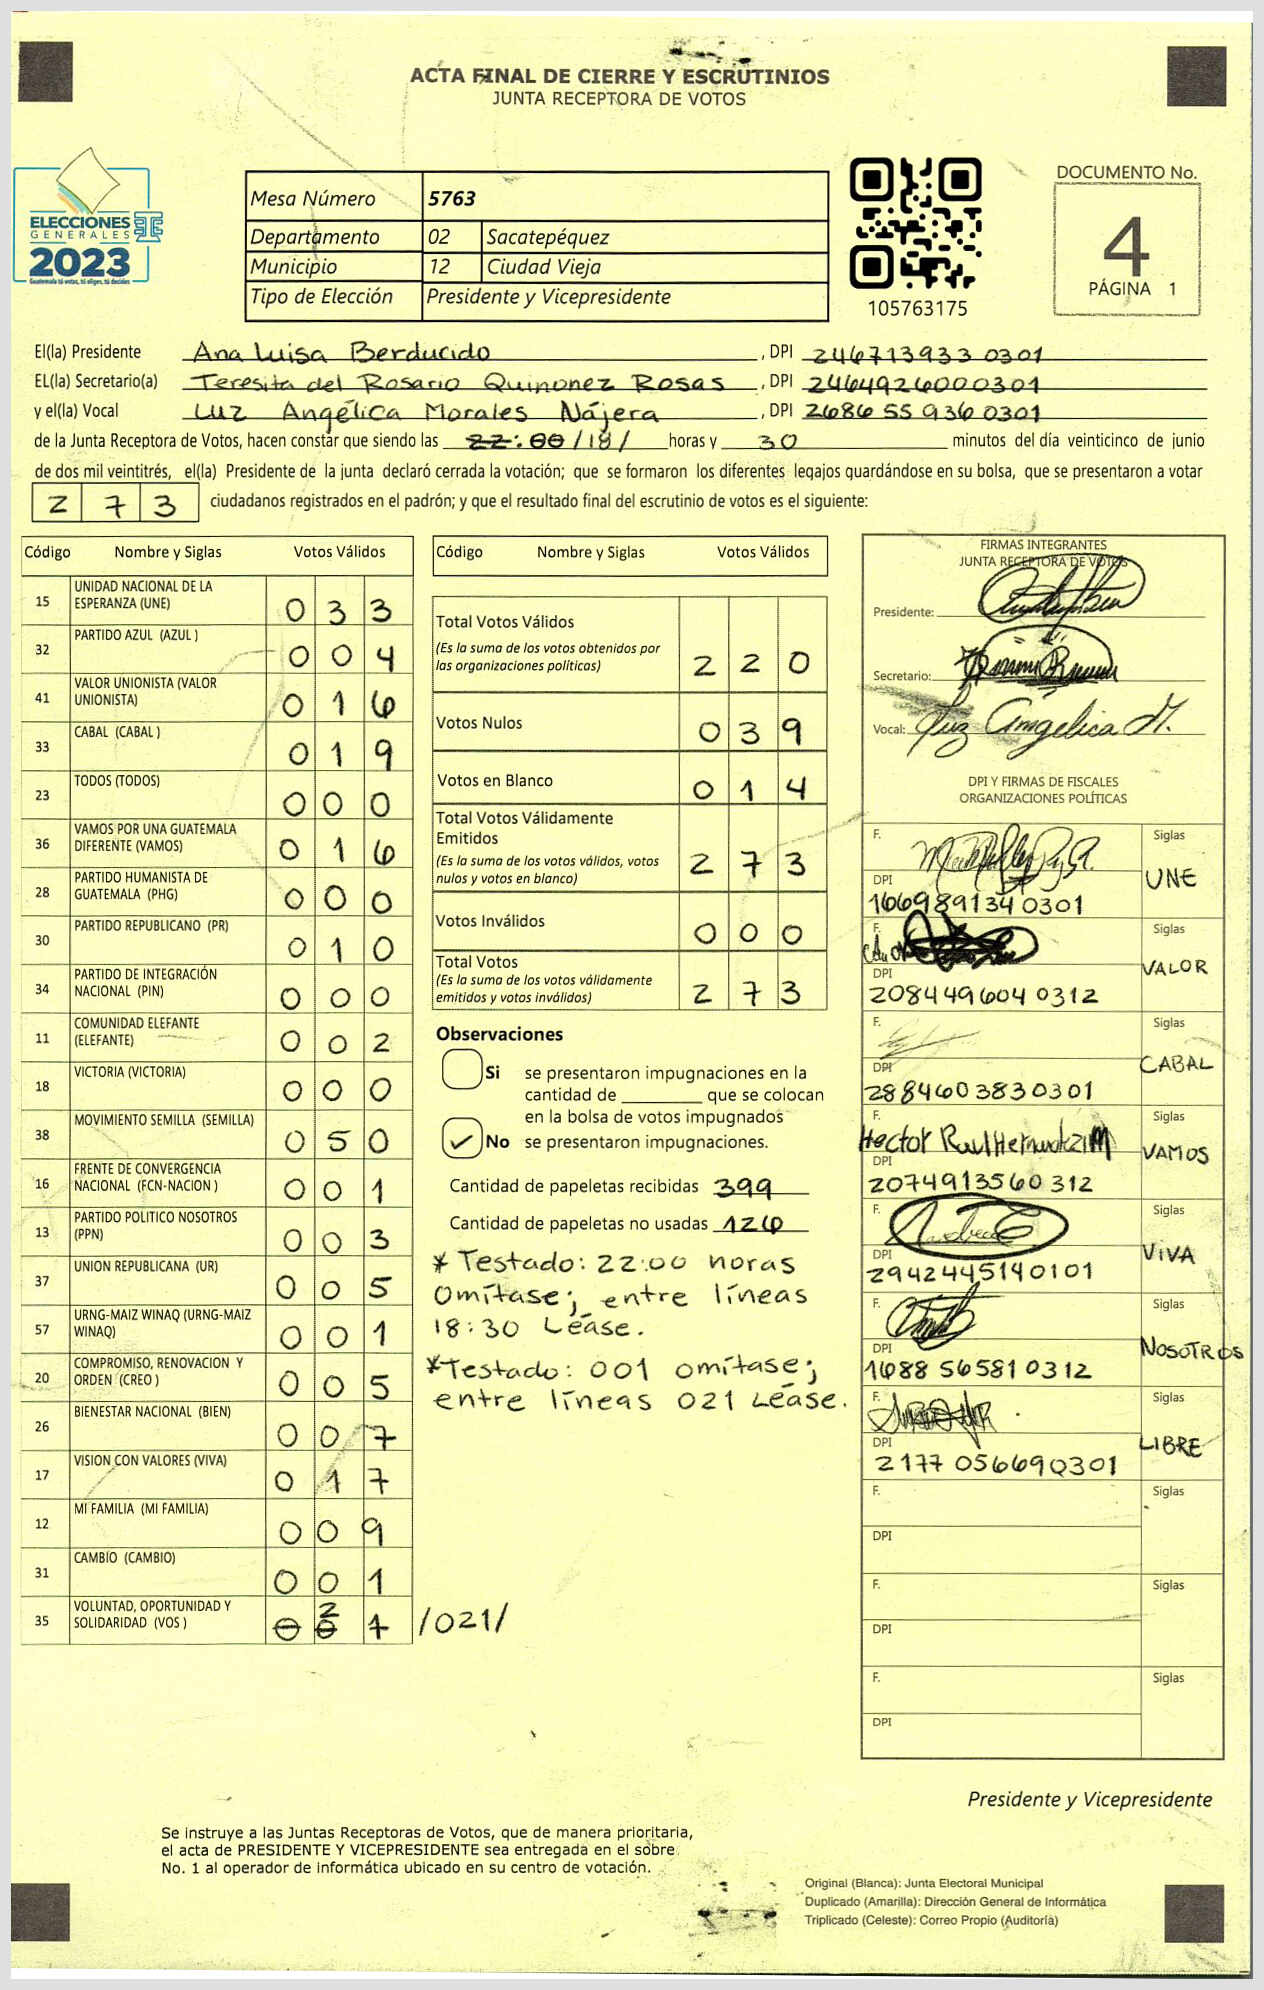 ACTA FINAL DE CIERRE Y ESCRUTINIOS
JUNTA RECEPTORA DE VOTOS
ELECCIONES
GENERALES
2023
Guatemala tú votas, tú eliges, tú decides
Mesa Número 5763
Departamento 02 Sacatepéquez
Municipio 12 Ciudad Vieja
Tipo de Elección Presidente y Vicepresidente
105763175
DOCUMENTO No.
4
PÁGINA 1
El(la) Presidente Ana Luisa Berducido , DPI 246713933 0301
EL(la) Secretario(a) Teresita del Rosario Quinonez Rosas , DPI 2464926000301
y el(la) Vocal Luz Angélica Morales Nájera , DPI 2686 55 936 0301
de la Junta Receptora de Votos, hacen constar que siendo las 22:00 /18/ horas y 30 minutos del día veinticinco de junio
de dos mil veintitrés, el(la) Presidente de la junta declaró cerrada la votación; que se formaron los diferentes legajos guardándose en su bolsa, que se presentaron a votar
273 ciudadanos registrados en el padrón; y que el resultado final del escrutinio de votos es el siguiente:
Código Nombre y Siglas Votos Válidos
15 UNIDAD NACIONAL DE LA ESPERANZA (UNE) 033
32 PARTIDO AZUL (AZUL ) 004
41 VALOR UNIONISTA (VALOR UNIONISTA) 016
33 CABAL (CABAL ) 019
23 TODOS (TODOS) 000
36 VAMOS POR UNA GUATEMALA DIFERENTE (VAMOS) 016
28 PARTIDO HUMANISTA DE GUATEMALA (PHG) 000
30 PARTIDO REPUBLICANO (PR) 010
34 PARTIDO DE INTEGRACIÓN NACIONAL (PIN) 000
11 COMUNIDAD ELEFANTE (ELEFANTE) 002
18 VICTORIA (VICTORIA) 000
38 MOVIMIENTO SEMILLA (SEMILLA) 050
16 FRENTE DE CONVERGENCIA NACIONAL (FCN-NACION ) 001
13 PARTIDO POLITICO NOSOTROS (PPN) 003
37 UNION REPUBLICANA (UR) 005
57 URNG-MAIZ WINAQ (URNG-MAIZ WINAQ) 001
20 COMPROMISO, RENOVACION Y ORDEN (CREO ) 005
26 BIENESTAR NACIONAL (BIEN) 007
17 VISION CON VALORES (VIVA) 017
12 MI FAMILIA (MI FAMILIA) 009
31 CAMBIO (CAMBIO) 001
35 VOLUNTAD, OPORTUNIDAD Y SOLIDARIDAD (VOS ) 001 2 /021/
Código Nombre y Siglas Votos Válidos
Total Votos Válidos
(Es la suma de los votos obtenidos por las organizaciones políticas) 220
Votos Nulos 039
Votos en Blanco 014
Total Votos Válidamente Emitidos
(Es la suma de los votos válidos, votos nulos y votos en blanco) 273
Votos Inválidos 000
Total Votos
(Es la suma de los votos válidamente emitidos y votos inválidos) 273
Observaciones
Si se presentaron impugnaciones en la
cantidad de ________ que se colocan
en la bolsa de votos impugnados
✓ No se presentaron impugnaciones.
Cantidad de papeletas recibidas 399
Cantidad de papeletas no usadas 126
* Testado: 22:00 horas
Omítase; entre líneas
18:30 Léase.
*Testado: 001 omítase;
entre líneas 021 Léase.
FIRMAS INTEGRANTES
JUNTA RECEPTORA DE VOTOS
Presidente:
Secretario:
Vocal: Luz Angelica M.
DPI Y FIRMAS DE FISCALES
ORGANIZACIONES POLÍTICAS
F. Siglas
DPI UNE
1669891340301
F. Siglas
DPI VALOR
208449604 0312
F. Siglas
DPI CABAL
2884603830301
F. Siglas
Hector Raul Hernandez M
DPI VAMOS
2074913560312
F. Siglas
DPI VIVA
2942445140101
F. Siglas
DPI NOSOTROS
1688 56581 0312
F. Siglas
DPI LIBRE
2177 056690301
F. Siglas
DPI
F. Siglas
DPI
F. Siglas
DPI
Presidente y Vicepresidente
Se instruye a las Juntas Receptoras de Votos, que de manera prioritaria,
el acta de PRESIDENTE Y VICEPRESIDENTE sea entregada en el sobre
No. 1 al operador de informática ubicado en su centro de votación.
Original (Blanca): Junta Electoral Municipal
Duplicado (Amarilla): Dirección General de Informática
Triplicado (Celeste): Correo Propio (Auditoría)